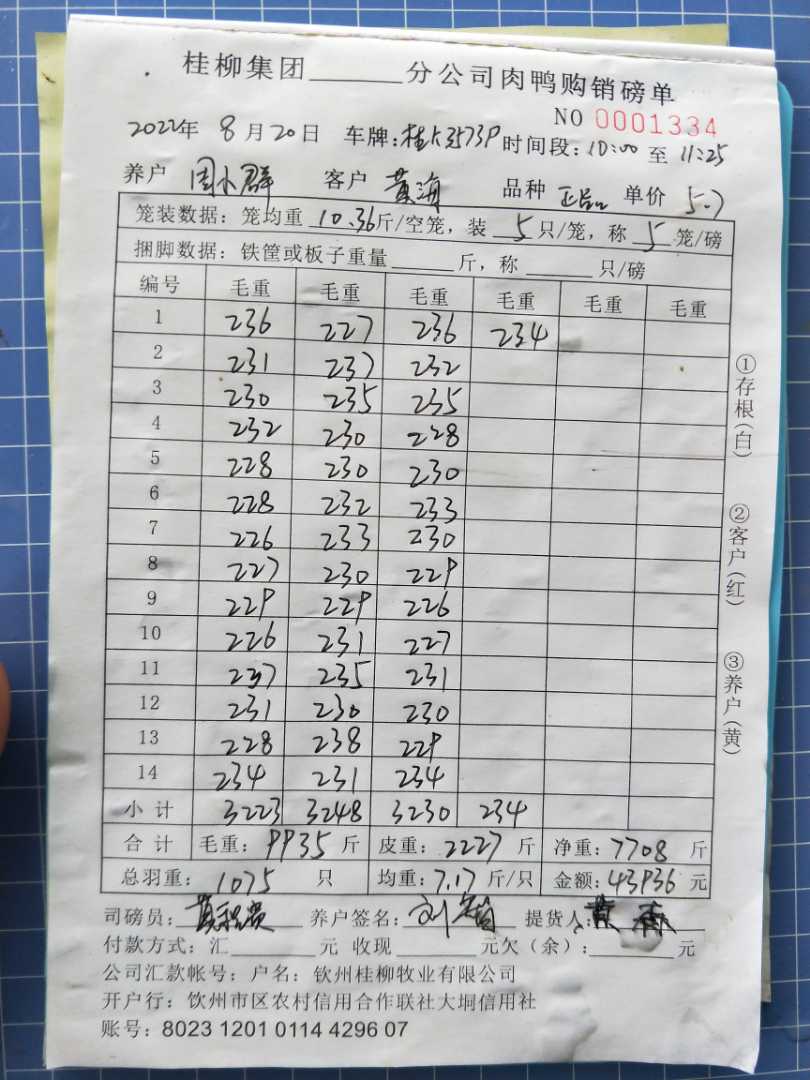 桂柳集团______分公司肉鸭购销磅单
NO 0001334
2022年 8月20日 车牌:桂 3573P 时间段:10:00 至 11:25
养户 周小群 客户 黄海 品种 正品 单价 5.7
笼装数据:笼均重 10.36 斤/空笼,装 5 只/笼,称 5 笼/磅
捆脚数据:铁筐或板子重量______斤,称______只/磅
编号 毛重 毛重 毛重 毛重 毛重 毛重
1 236 227 236 234
2 231 237 232
3 230 235 235
4 232 230 228
5 228 230 230
6 228 232 233
7 226 233 230
8 227 230 229
9 229 229 226
10 226 231 227
11 237 235 231
12 231 230 230
13 228 238 229
14 234 231 234
小计 3223 3248 3230 234
合计 毛重:9935 斤 皮重:2227 斤 净重:7708 斤
总羽重:1075 只 均重:7.17 斤/只 金额:43936 元
司磅员: 养户签名: 提货人:
付款方式:汇______元 收现______元欠(余):______元
公司汇款帐号:户名:钦州桂柳牧业有限公司
开户行:钦州市区农村信用合作联社大垌信用社
账号:8023 1201 0114 4296 07
①存根(白)
②客户(红)
③养户(黄)